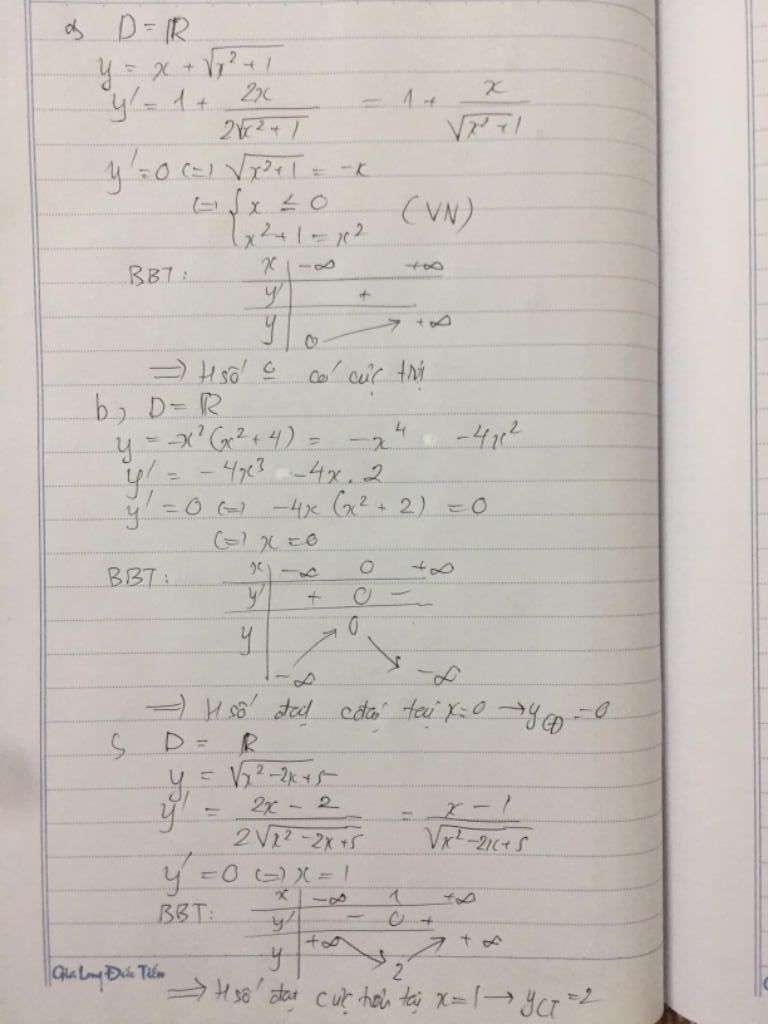 a) D = ℝ
y = x + √(x² + 1)
y' = 1 + 2x / (2√(x² + 1)) = 1 + x / √(x² + 1)
y' = 0 (=) √(x² + 1) = -x
(=) { x ≤ 0 ; x² + 1 = x² (VN)
BBT: x | -∞ +∞
y' | +
y | 0 ↗ +∞
=> H số có cực trị
b, D = ℝ
y = -x²(x² + 4) = -x⁴ - 4x²
y' = -4x³ - 4x . 2
y' = 0 (=) -4x (x² + 2) = 0
(=) x = 0
BBT: x | -∞ 0 +∞
y' | + 0 -
y | -∞ ↗ 0 ↘ -∞
=> H số đạt cđại tại x = 0 → y = 0
D = ℝ
y = √(x² - 2x + 5)
y' = (2x - 2) / (2√(x² - 2x + 5)) = (x - 1) / √(x² - 2x + 5)
y' = 0 (=) x = 1
BBT: x | -∞ 1 +∞
y' | - 0 +
y | +∞ ↘ 2 ↗ +∞
Gia Long Đức Tiến
=> H số đạt cực tiểu tại x = 1 → yCT = 2